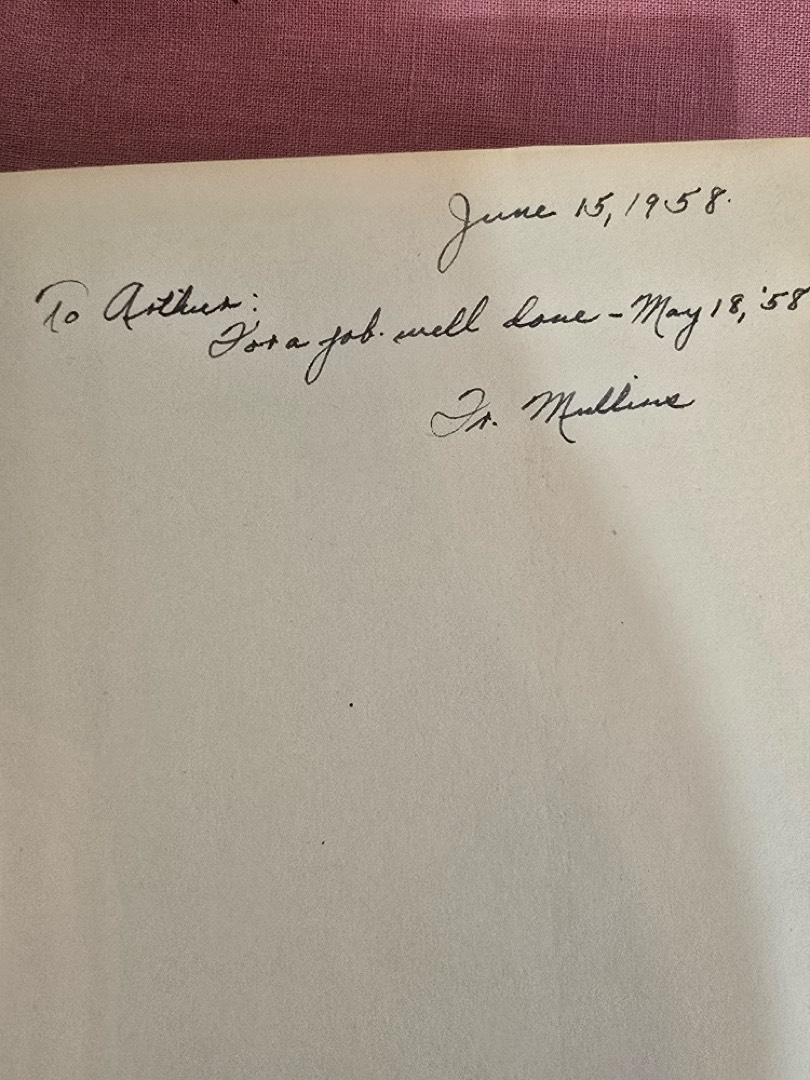 June 15, 1958.
To Arthur:
For a job well done - May 18, '58
Fr. Mullins